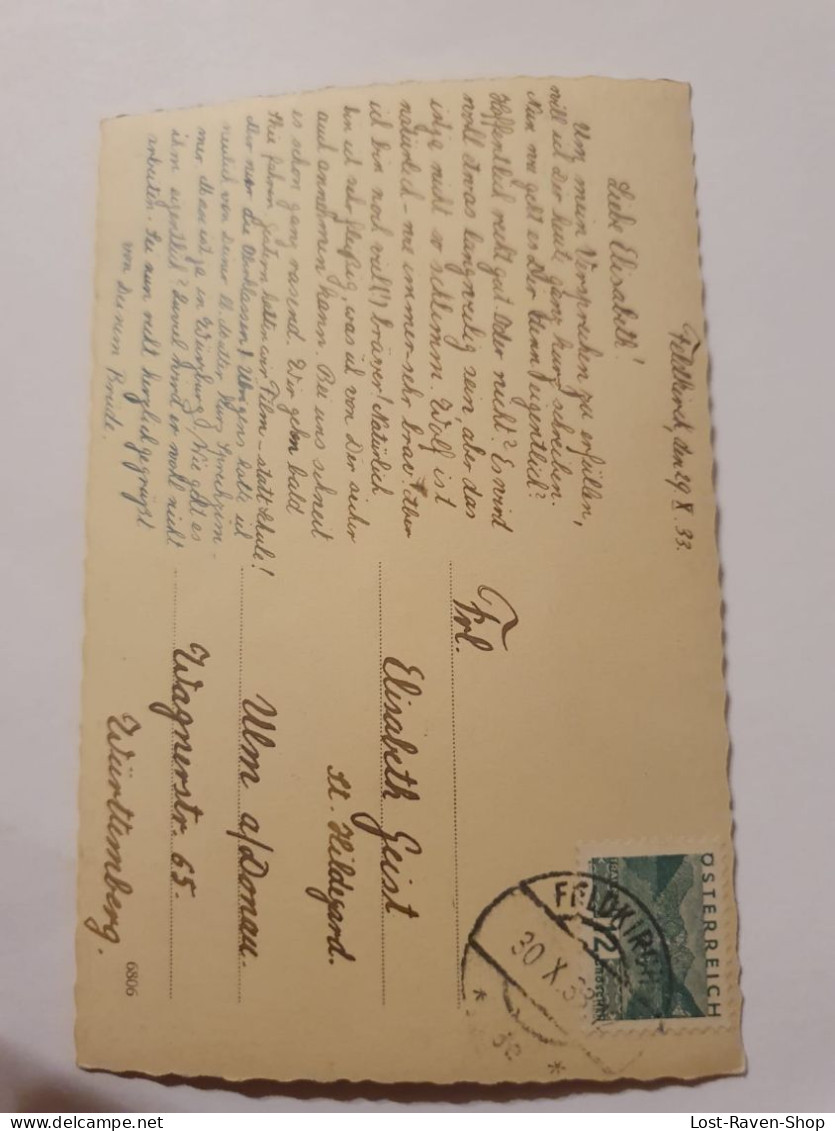 Feldkirch, den 29. X. 33.
Liebe Elisabeth!
Um mein Versprechen zu erfüllen,
will ich Dir heute ganz kurz schreiben.
Nun wie geht es Dir denn eigentlich?
Hoffentlich recht gut. Oder nicht? Es wird
wohl etwas langweilig sein, aber das
ist ja nicht so schlimm. Wolf ist
natürlich - wie immer - sehr brav. Aber
ich bin noch viel (!) bräver! Natürlich
bin ich sehr fleißig, was ich von Dir sicher
auch annehmen kann. Bei uns schneit
es schon ganz rasend. Wir gehn bald
Ski fahren. Gestern hatten wir Film - statt Schule!
Aber nur die Oberklassen! Übrigens hatte ich
neulich von Deiner lb. Mutter kurz
mer ja in Würzburg! Wie geht es
ihm eigentlich? Soviel wird er wohl nicht
arbeiten. Sei nun recht herzlich gegrüßt
von Deinem Bruder.
Frl.
Elisabeth Geist
St. Hildegard.
Ulm a/Donau.
Wagnerstr. 65.
Württemberg.
6806
ÖSTERREICH
FELDKIRCH
30 X 33
Lost-Raven-Shop